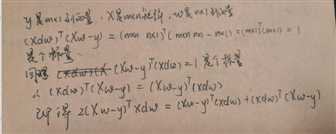 y是m×1列向量，X是m×n矩阵，w是n×1列向量
(Xdw)ᵀ(Xw-y) = (m×n n×1)ᵀ(m×n n×1 - m×1) = (m×1)ᵀ(m×1) = 1
是个标量
同理 (Xw-y)ᵀ(Xdw) = 1 是个标量
∴ (Xdw)ᵀ(Xw-y) = (Xw-y)ᵀ(Xdw)
2(Xw-y)ᵀXdw = (Xw-y)ᵀ(Xdw) + (Xdw)ᵀ(Xw-y)